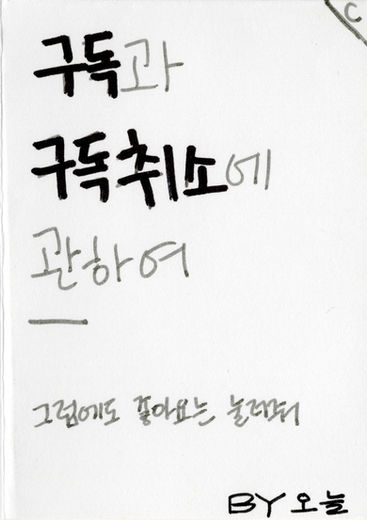 C
구독과
구독취소에
관하여
그럼에도 좋아요는 눌러줘
BY 오늘